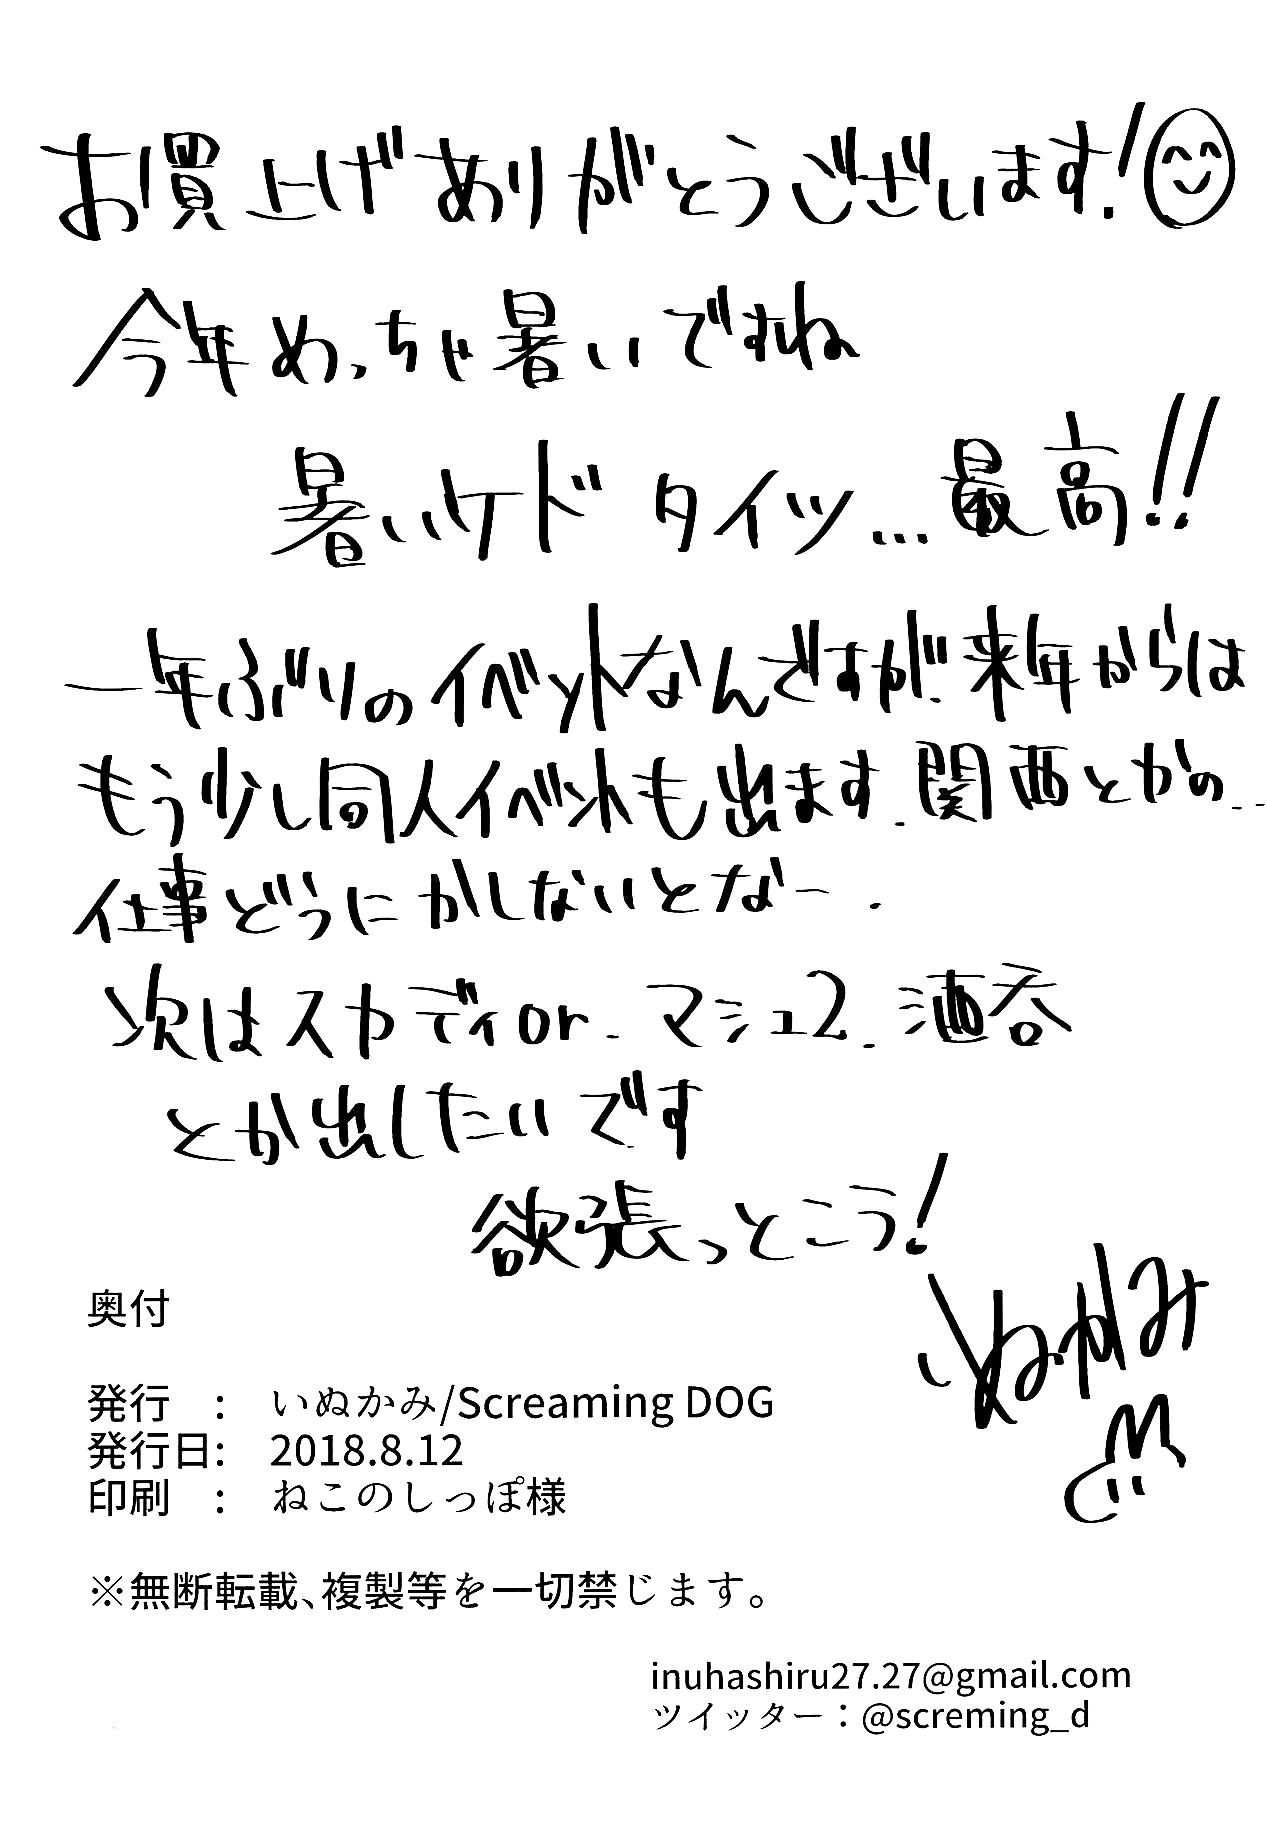 お買上げありがとうございます!
今年めっちゃ暑いですね
暑いケド タイツ…最高!!
一年ぶりのイベントなんですが、来年からは
もう少し同人イベントも出ます.関西とかの..
仕事どうにかしないとなー.
次はスカディor.マシュ2.酒呑
とか出したいです
欲張っとこう!
いぬかみ
奥付
発行 : いぬかみ/Screaming DOG
発行日: 2018.8.12
印刷 : ねこのしっぽ様
※無断転載、複製等を一切禁じます。
inuhashiru27.27@gmail.com
ツイッター：@screming_d